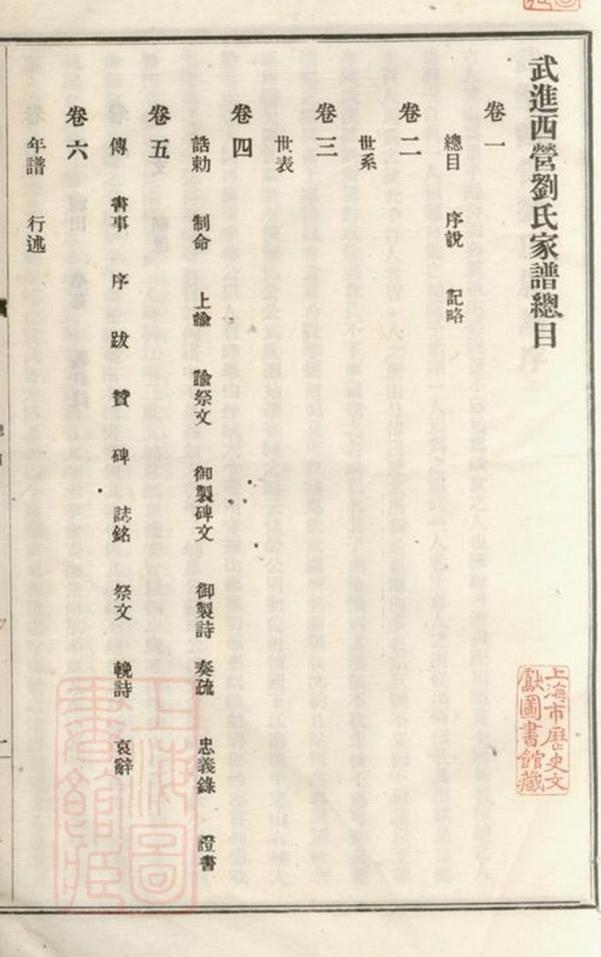 武進西營劉氏家譜總目
卷一
總目 序說 記略
卷二
世系
卷三
世表
卷四
誥勅 制命 上諭 諭祭文 御製碑文 御製詩 奏疏 忠義錄 證書
卷五
傳 書事 序 跋 贊 碑 誌銘 祭文 輓詩 哀辭
卷六
年譜 行述
上海市歷史文
獻圖書館藏
上海圖
書館藏